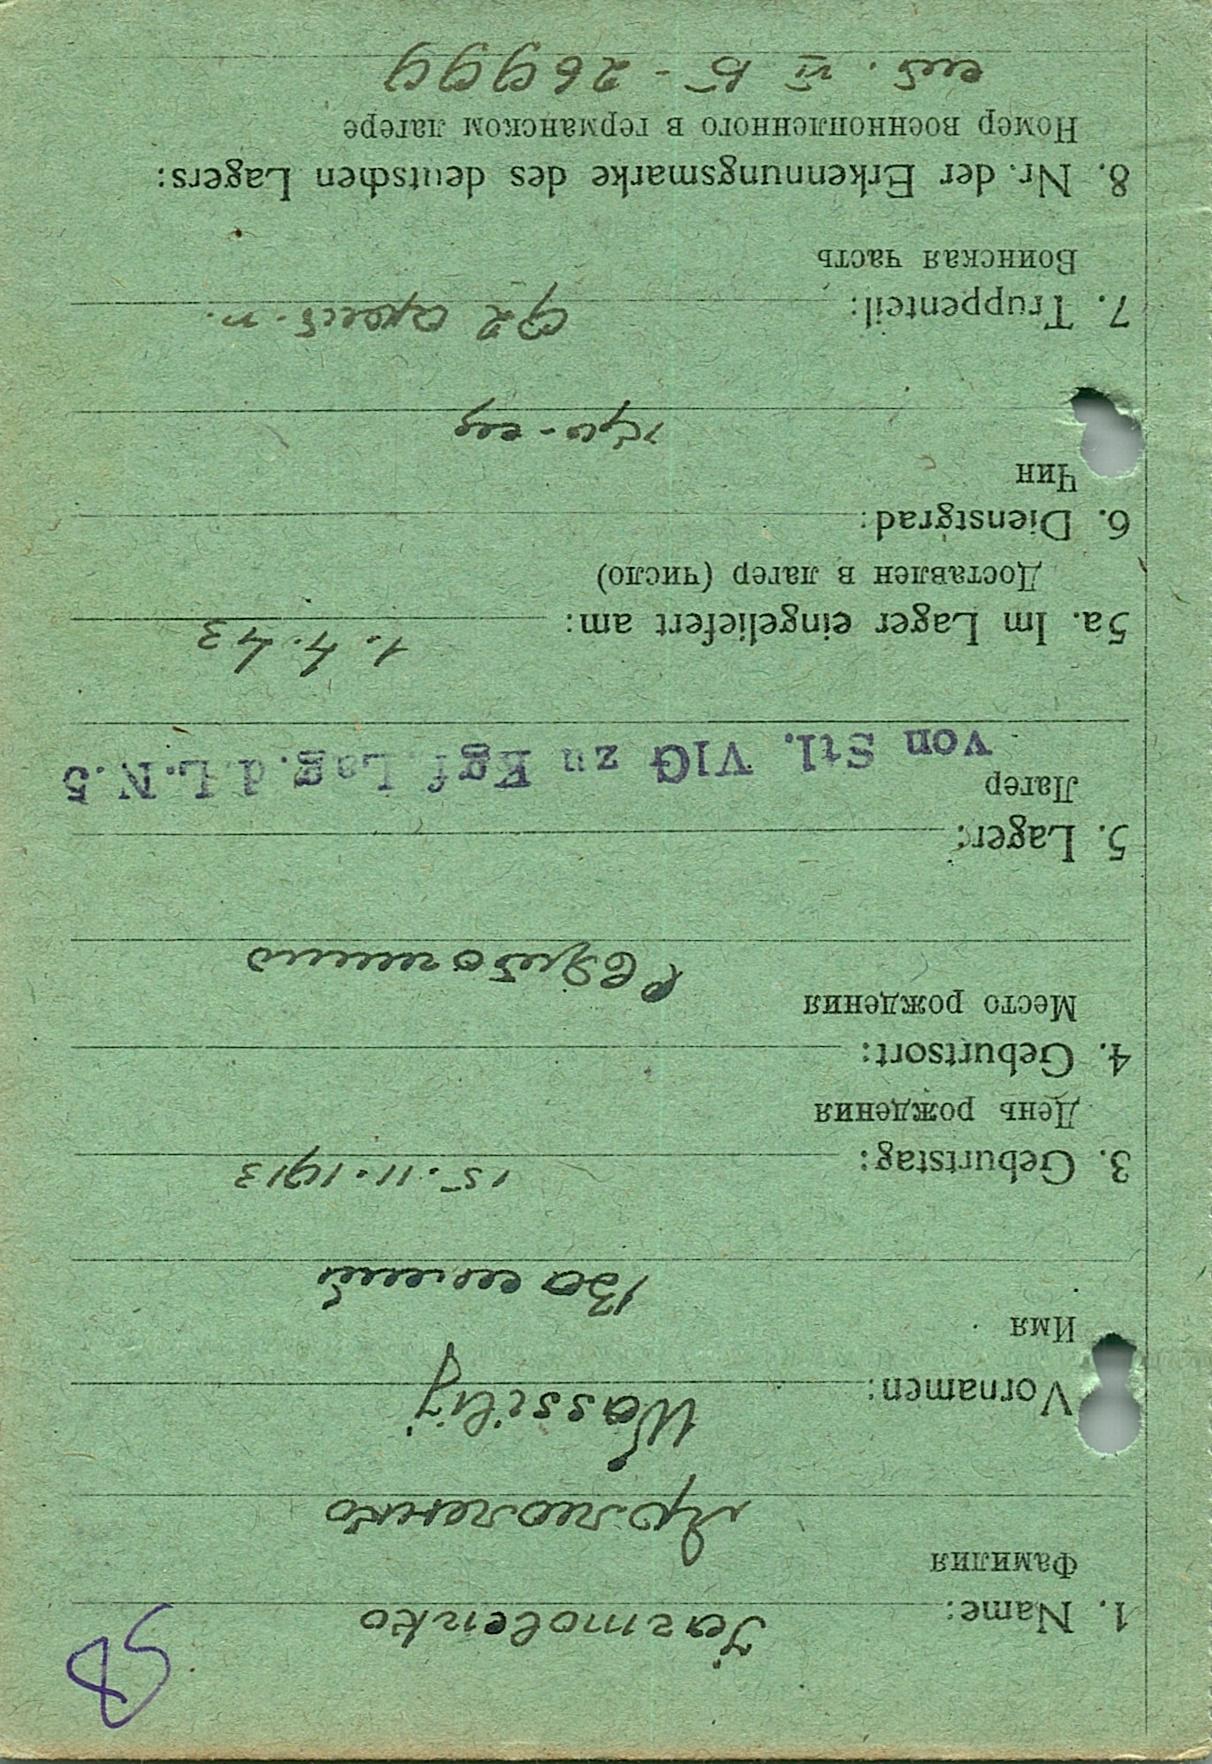 85
1. Name: Jarmolenko
Фамилия
Ярмоленко
Vornamen: Wassilij
Имя
Василий
3. Geburtstag: 15.11.1913
День рождения
4. Geburtsort:
Место рождения
5. Lager:
Лагерь
von Stl. VIG zu Kgf. Lag. d. L. N. 5
5a. Im Lager eingeliefert am: 1.4.43
Доставлен в лагер (число)
6. Dienstgrad:
Чин
7. Truppenteil: 92
Воинская часть
8. Nr. der Erkennungsmarke des deutschen Lagers:
Номер военнопленного в германском лагере
VI - 26999